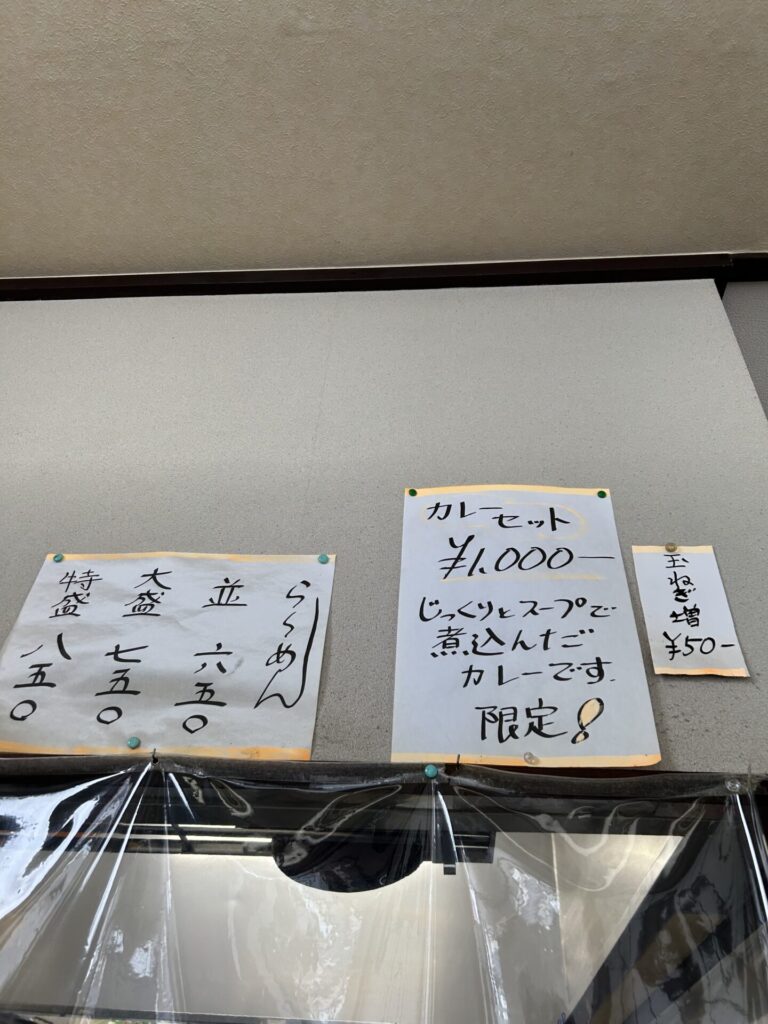 らーめん
並 六五〇
大盛 七五〇
特盛 八五〇
カレー
セット
¥1,000-
じっくりとスープで
煮込んだ
カレーです
限定!
玉ねぎ増
¥50-